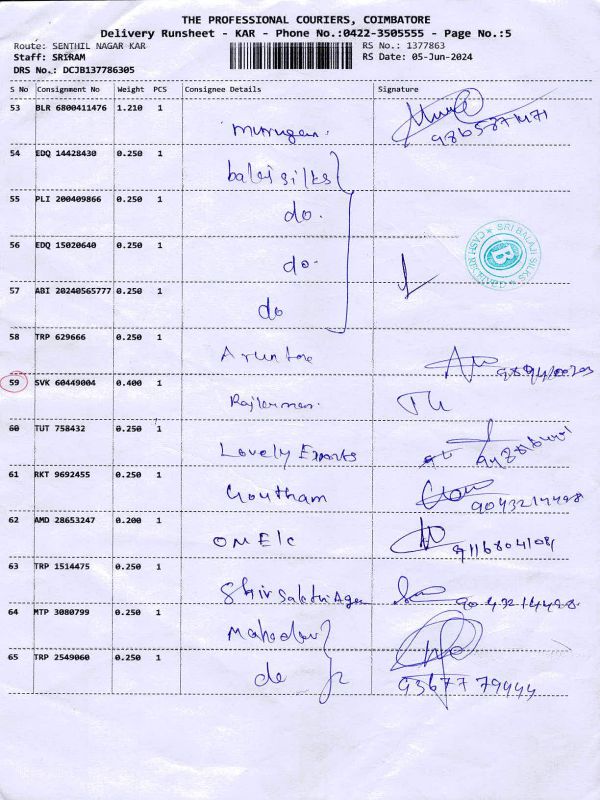 THE PROFESSIONAL COURIERS, COIMBATORE
Delivery Runsheet - KAR - Phone No.:0422-3505555 - Page No.:5
Route: SENTHIL NAGAR KAR RS No.: 1377863
Staff: SRIRAM RS Date: 05-Jun-2024
DRS No.: DCJB137786305
S No Consignment No Weight PCS Consignee Details Signature
53 BLR 6800411476 1.210 1 murugan
54 EDQ 14428430 0.250 1 balaji silks
55 PLI 200409866 0.250 1 do.
56 EDQ 15020640 0.250 1 do.
57 ABI 20240565777 0.250 1 do
SRI BALAJI SILKS
B
58 TRP 629666 0.250 1
59 SVK 60449004 0.400 1
60 TUT 758432 0.250 1 Lovely Exports
61 RKT 9692455 0.250 1 Goutham 9043214498
62 AMD 28653247 0.200 1
63 TRP 1514475 0.250 1
64 MTP 3080799 0.250 1
65 TRP 2549060 0.250 1 do 9367779444